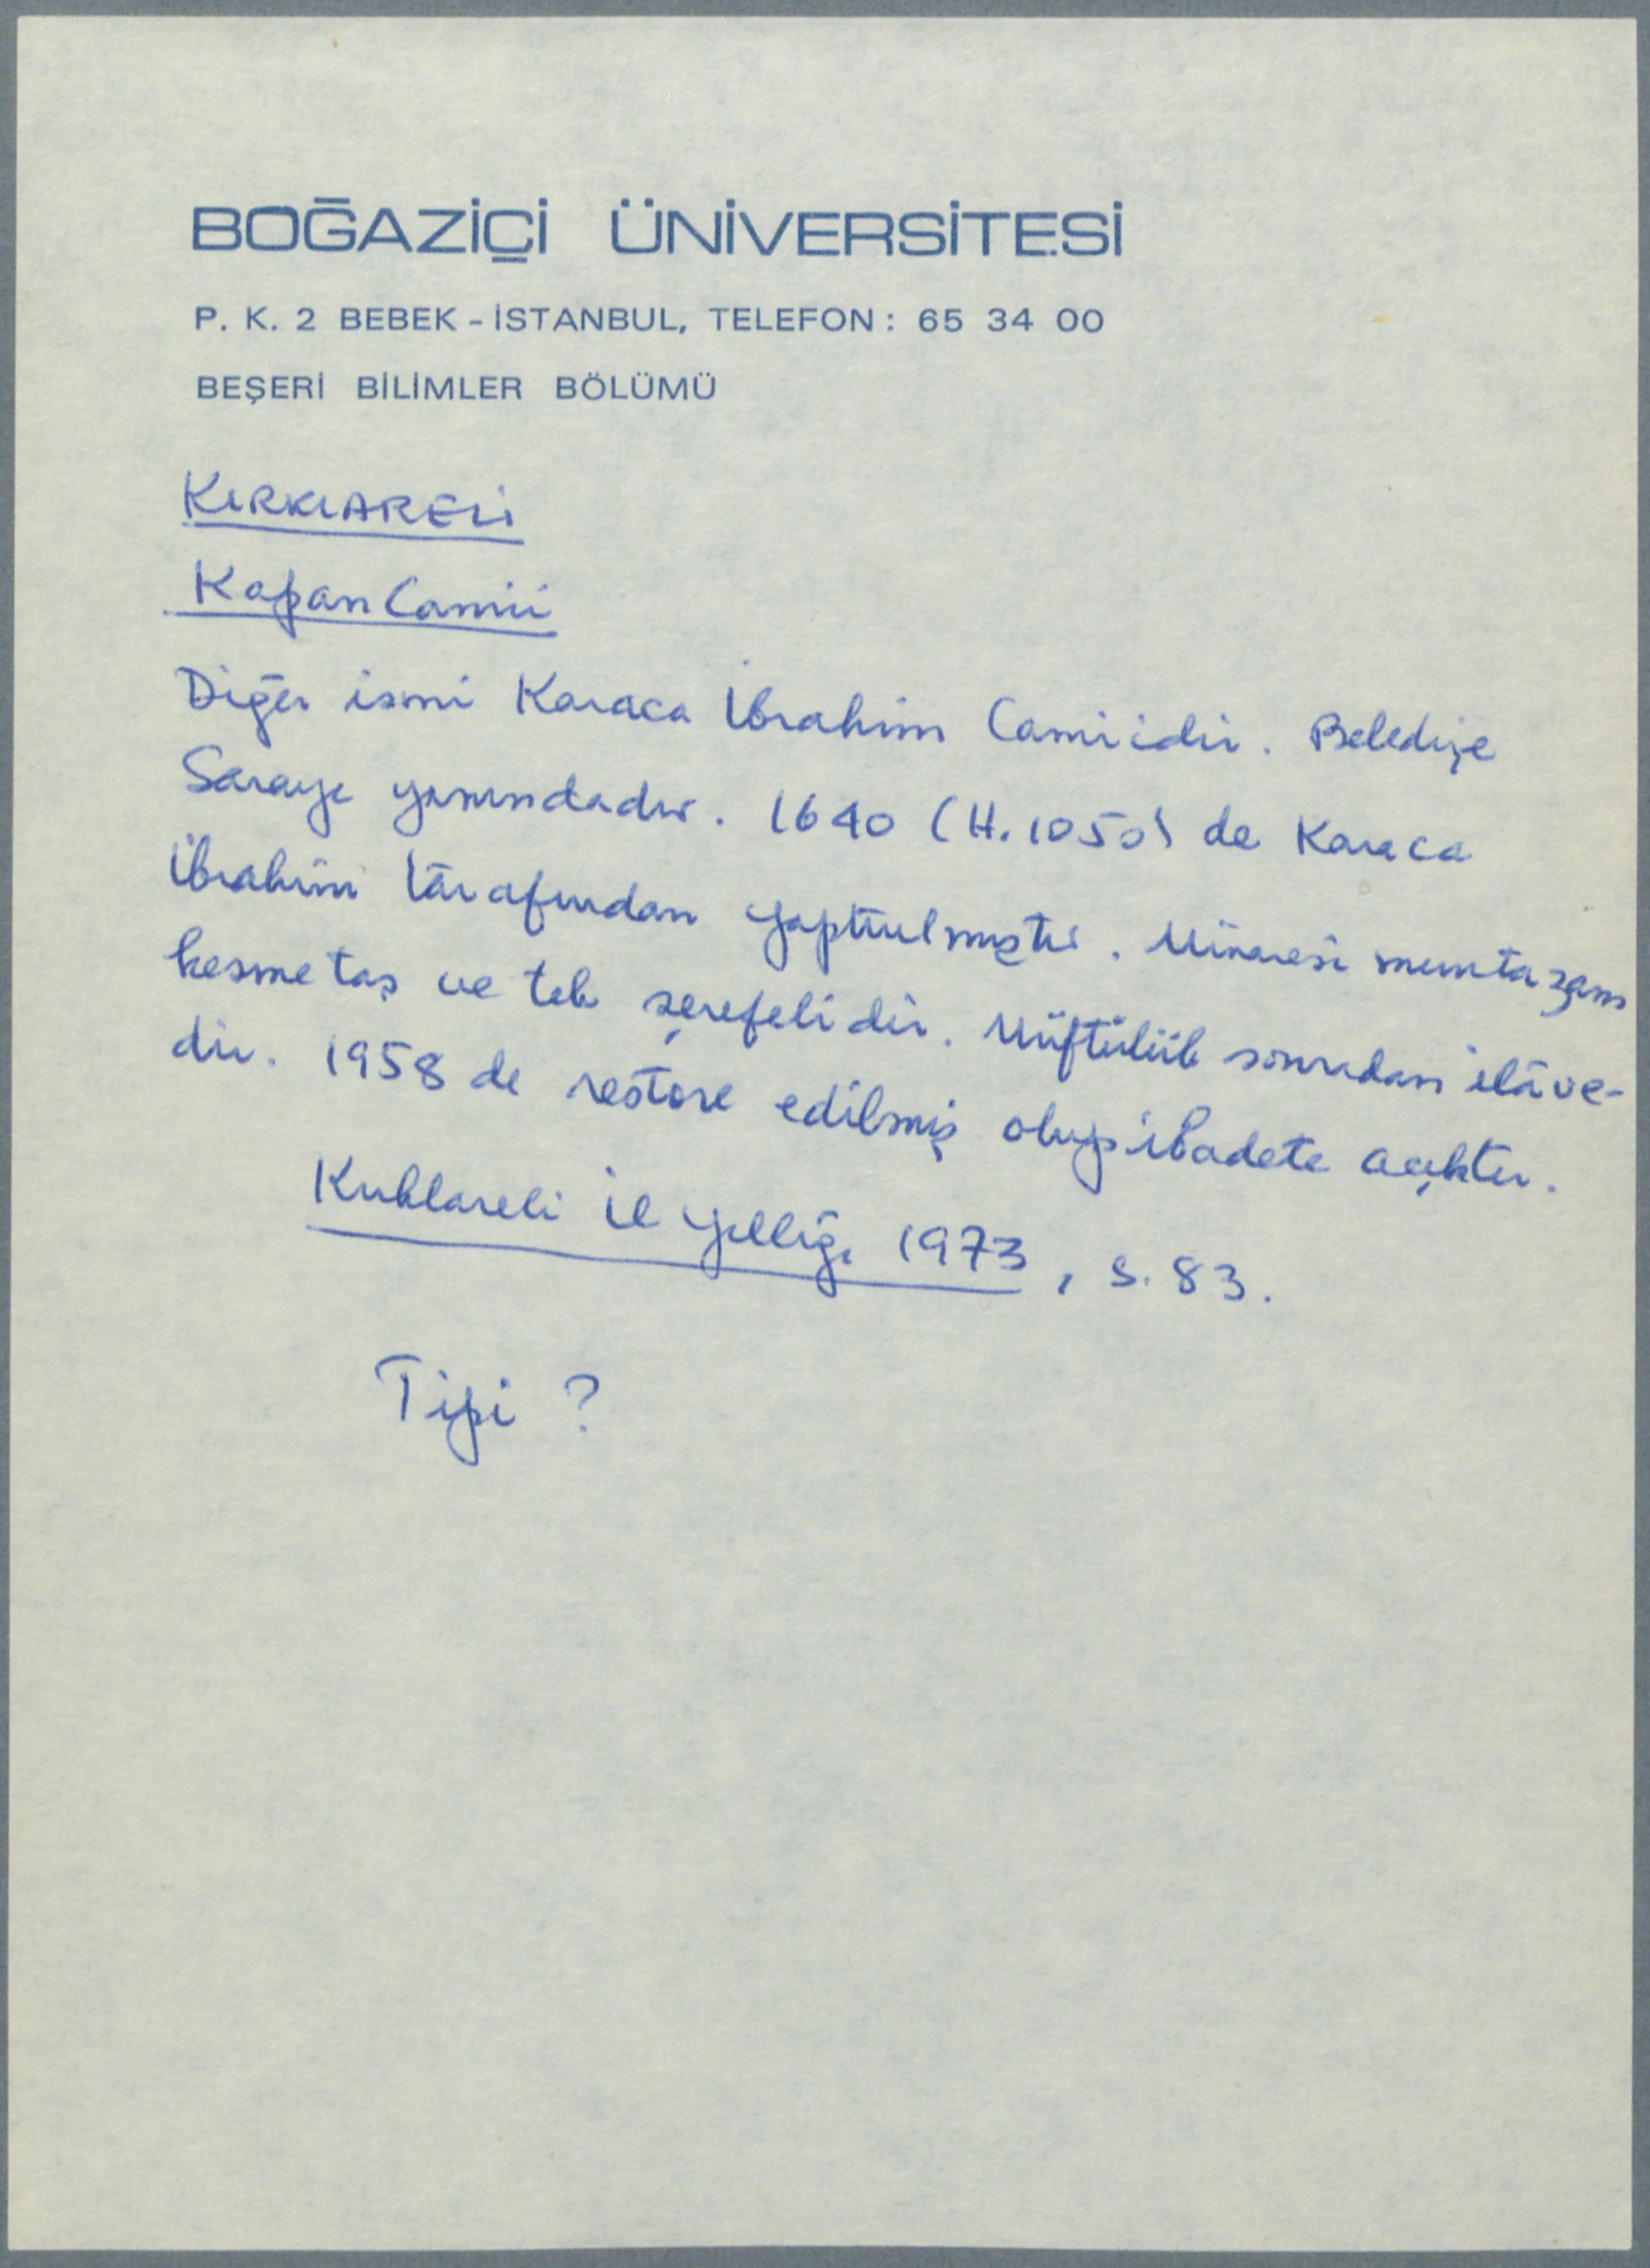 BOĞAZİÇİ ÜNİVERSİTESİ
P. K. 2 BEBEK - İSTANBUL, TELEFON : 65 34 00
BEŞERİ BİLİMLER BÖLÜMÜ
KIRKLARELİ
Kapan Camii
Diğer ismi Karaca İbrahim Camiidir. Belediye
Sarayı yanındadır. 1640 (H. 1050) de Karaca
İbrahim tarafından yaptırılmıştır. Minaresi muntazam
kesme taş ve tek şerefelidir. Müftülük sonradan ilâve-
dir. 1958 de restore edilmiş olup ibadete açıktır.
Kırklareli İl Yıllığı 1973, s. 83.
Tipi ?